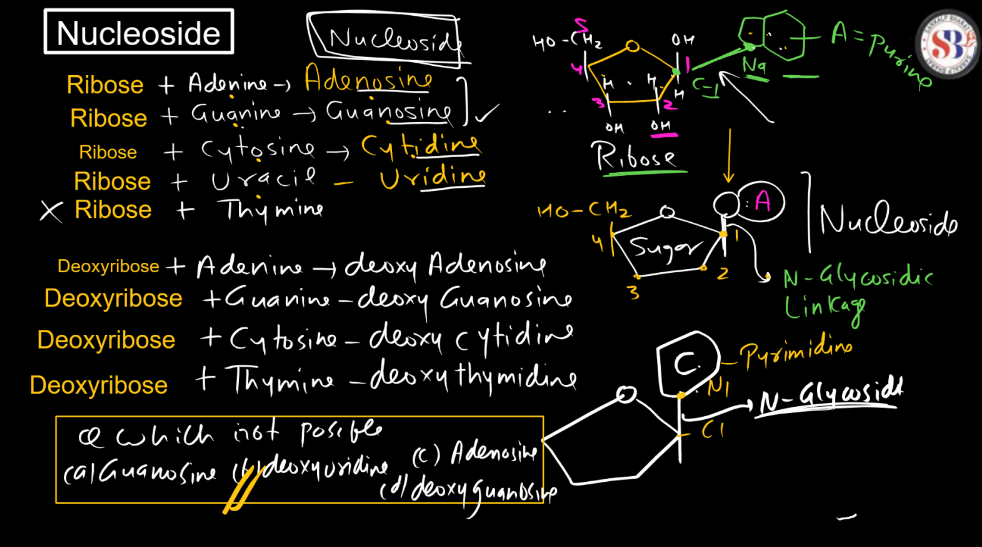 Nucleoside
Nucleoside
Ribose + Adenine → Adenosine
Ribose + Guanine → Guanosine
Ribose + Cytosine → Cytidine
Ribose + Uracil - Uridine
X Ribose + Thymine
Deoxyribose + Adenine → deoxy Adenosine
Deoxyribose + Guanine - deoxy Guanosine
Deoxyribose + Cytosine - deoxy cytidine
Deoxyribose + Thymine - deoxy thymidine
Q which not posible
(a) Guanosine (b) deoxyuridine (c) Adenosine
(d) deoxyguanosine
HO-CH2
5
4
3
2
1
OH
H
H
H
OH
OH
C-1
N9
A = Purine
Ribose
HO-CH2
4
3
2
1
Sugar
A
Nucleoside
N-Glycosidic
Linkage
C
Pyrimidine
N1
C1
N-Glycosidi
SB